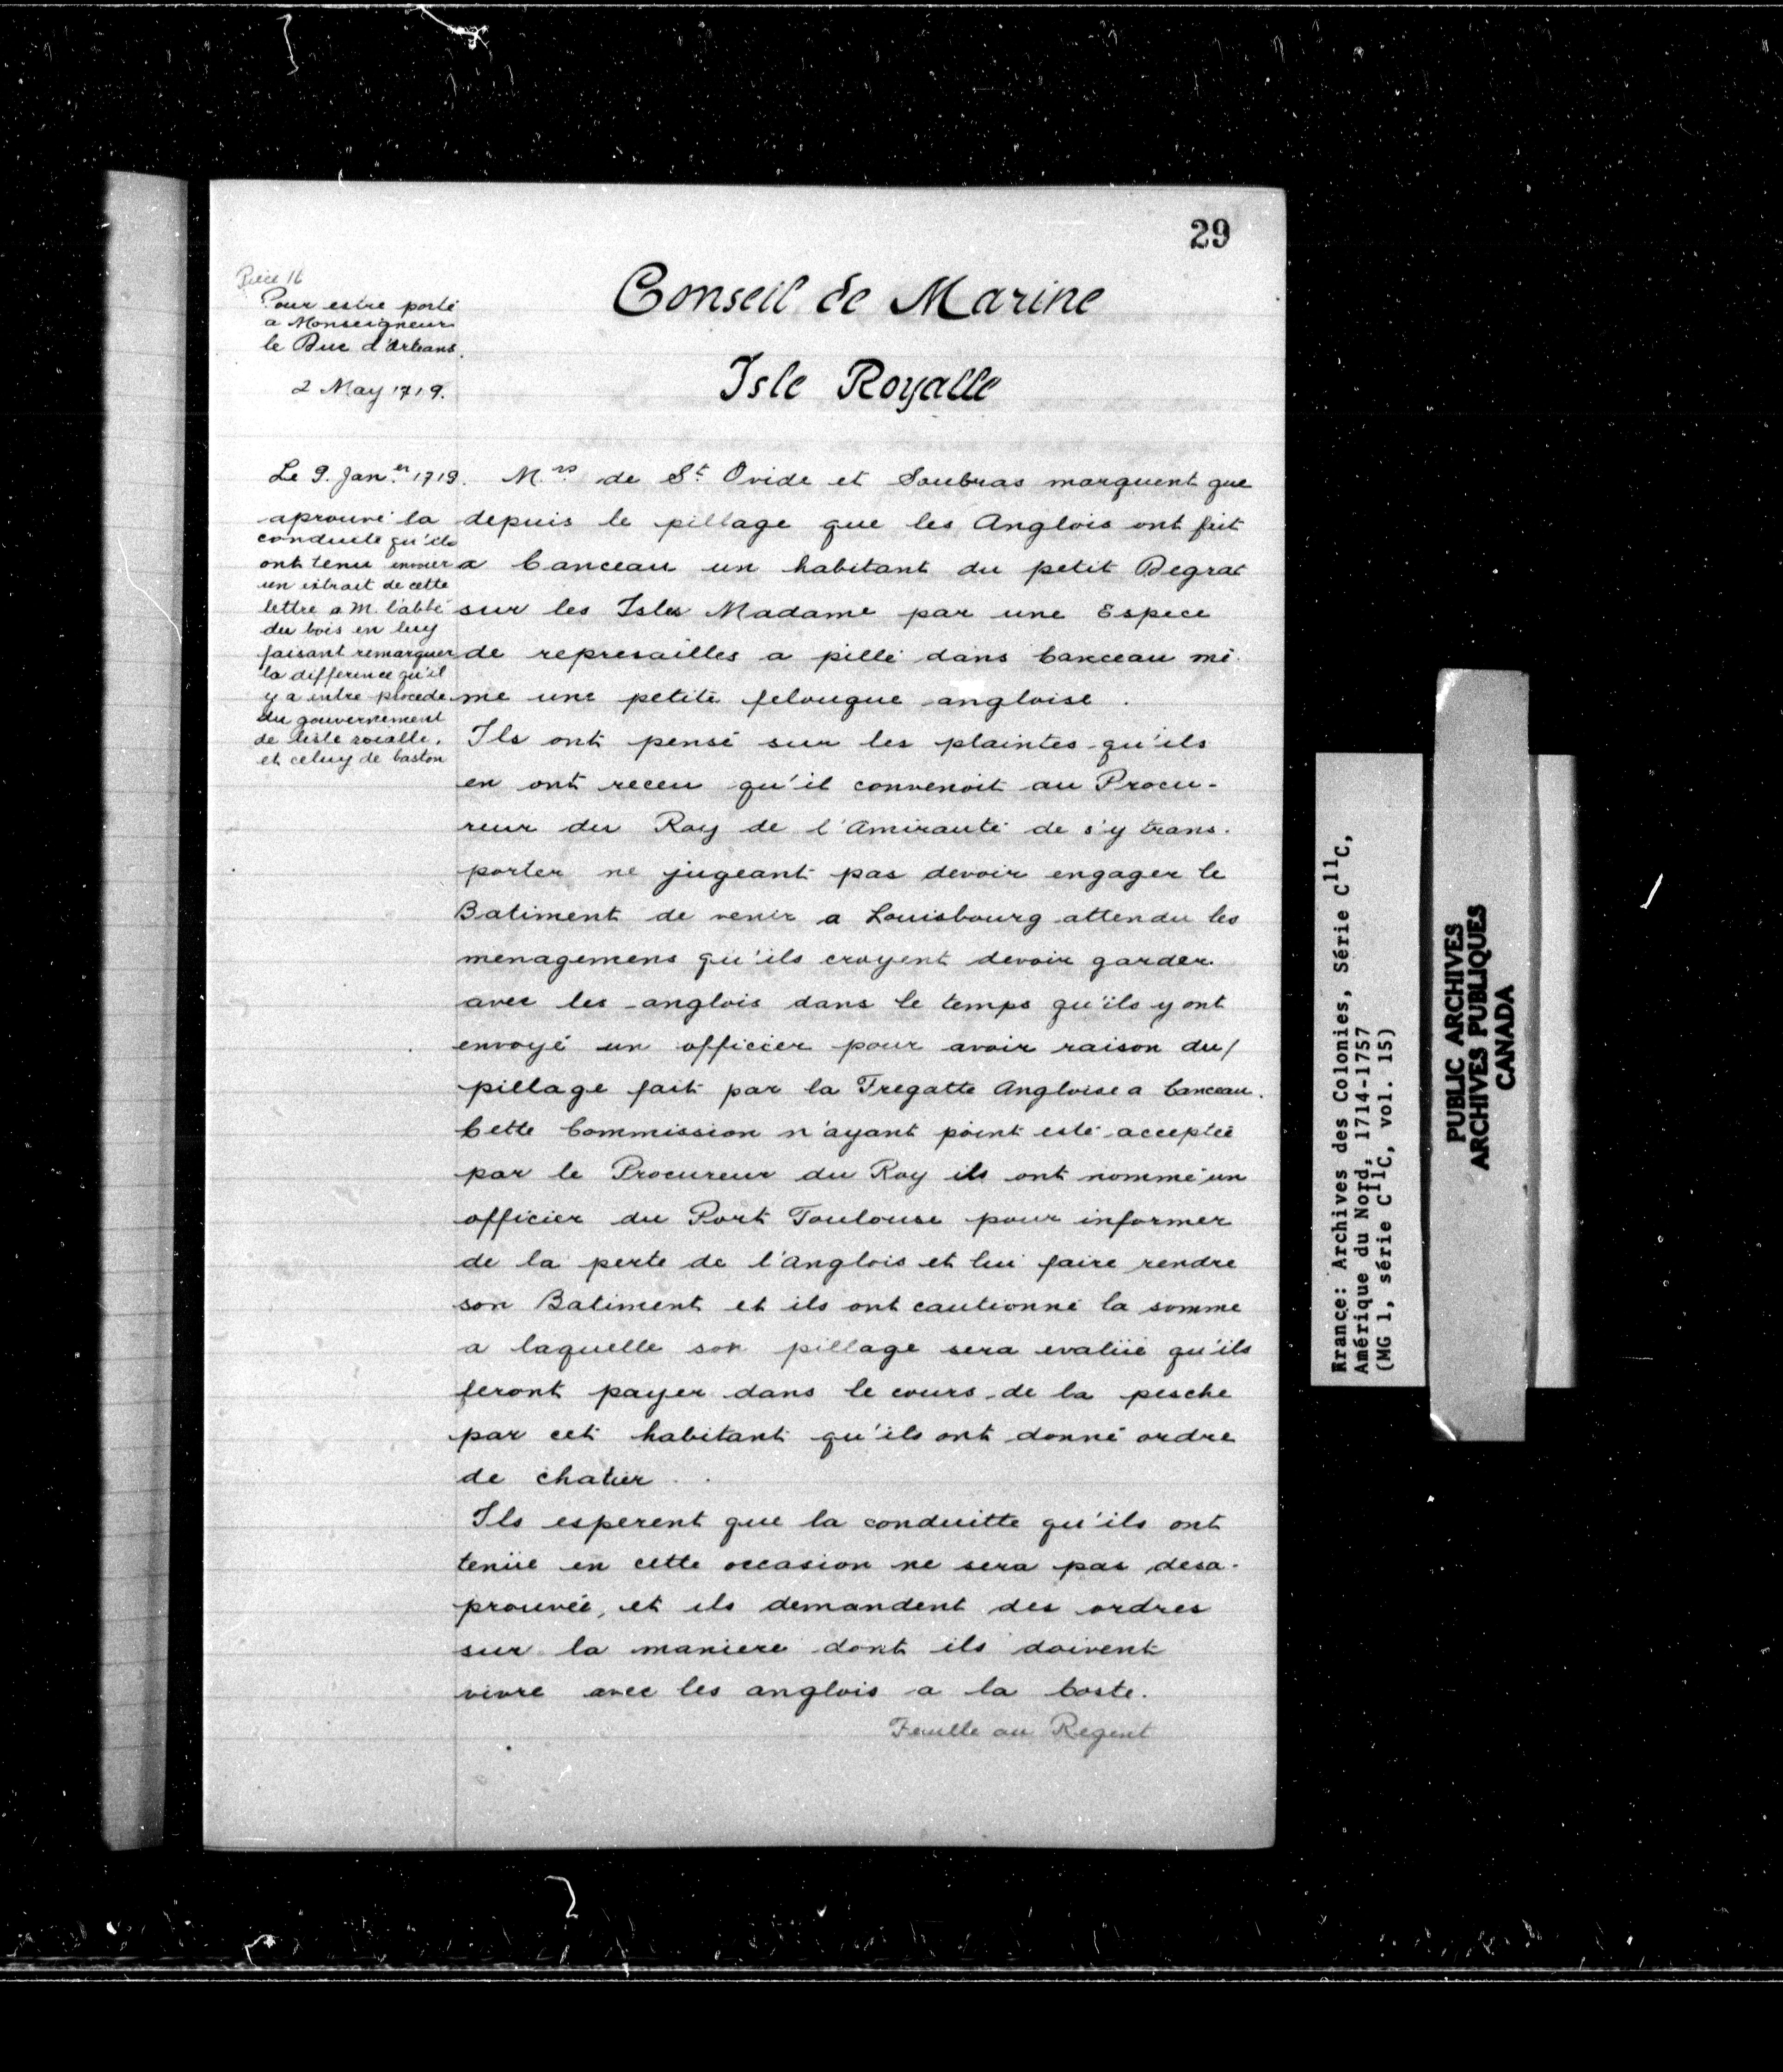 29
Conseil de Marine
Isle Royalle
Pièce 16
Pour estre porté
a Monseigneur
le Duc d'Orleans.
2 May 1719.
Le 9. Jan.er 1719.
aprouvé la
conduite qu'ils
ont tenu envoier
un extrait de cette
lettre a M. l'abbé
du bois en luy
faisant remarquer
la difference qu'il
y a entre procede
du gouvernement
de lisle roialle.
et celuy de baston
M.rs de St. Ovide et Soubras marquent que
depuis le pillage que les Anglois ont fait
a Canceau un habitant du petit Degrat
sur les Isles Madame par une Espece
de represailles a pillé dans Canceau mê-
me une petite felouque angloise.
Ils ont pensé sur les plaintes qu'ils
en ont receu qu'il convenoit au Procu-
reur du Roy de l'Amirauté de s'y trans-
porter ne jugeant pas devoir engager le
Batiment de venir a Louisbourg attendu les
menagemens qu'ils croyent devoir garder
avec les anglois dans le temps qu'ils y ont
envoyé un officier pour avoir raison du
pillage fait par la Fregatte Angloise a Canceau.
Cette Commission n'ayant point esté acceptée
par le Procureur du Roy ils ont nommé un
officier du Port Toulouse pour informer
de la perte de l'Anglois et lui faire rendre
son Batiment et ils ont cautionné la somme
a laquelle son pillage sera evalüé qu'ils
feront payer dans le cours de la pesche
par cet habitant qu'ils ont donné ordre
de chatier.
Ils esperent que la conduitte qu'ils ont
tenüe en cette occasion ne sera pas desa-
prouvée, et ils demandent des ordres
sur la maniere dont ils doivent
vivre avec les anglois a la Coste.
Feuille au Regent
Rrance: Archives des Colonies, Série C11C,
Amérique du Nord, 1714-1757
(MG 1, série C11C, vol. 15)
PUBLIC ARCHIVES
ARCHIVES PUBLIQUES
CANADA